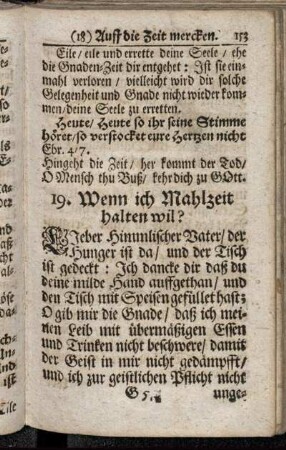 (18) Auff die Zeit mercken. 153
Eile/ eile und errette deine Seele/ ehe
die Gnaden-Zeit dir entgehet: Ist sie ein-
mahl verloren/ vielleicht wird dir solche
Gelegenheit und Gnade nicht wieder kom-
men/ deine Seele zu erretten.
Heute/ Heute so ihr seine Stimme
höret/ so verstocket eure Hertzen nicht
Ebr. 4/7.
Hingeht die Zeit/ her kommt der Tod/
O Mensch thu Buß/ kehr dich zu GOtt.
19. Wenn ich Mahlzeit
halten wil?
LIeber Himmlischer Vater/ der
Hunger ist da/ und der Tisch
ist gedeckt: Ich dancke dir daß du
deine milde Hand auffgethan/ und
den Tisch mit Speisen gefüllet hast:
O gib mir die Gnade/ daß ich mei-
nen Leib mit übermäßigen Essen
und Trinken nicht beschwere/ damit
der Geist in mir nicht gedämpfft/
und ich zur geistlichen Pflicht nicht
G 5. unge-